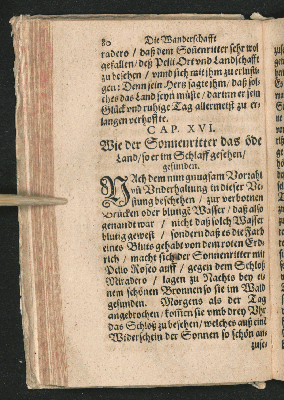 80 Die Wanderschafft
radero / daß dem Sonenritter sehr wol
gefallen / deß Pelli Ort vnd Landschafft
zu besehen / vnnd sich mit ihm zu erlusti-
gen: Denn sein Hertz sagte ihm / daß sol-
ches das Land seyn müste / darinn er sein
Glück vnd ruhige Tag allermeist zu er-
langen verhoffte.
CAP. XVI.
Wie der Sonnenritter das öde
Land / so er im Schlaff gesehen /
gefunden.
NAch dem nun gnugsam Vorraht
vñ Vnderhaltung in dieser Ve-
stung beschehen / zur verbotnen
Brücken oder blutigē Wasser / daß also
genandt war / nicht daß solch Wasser
blutig gewest / sondern daß es die Farb
eines Bluts gehabt von dem roten Erd-
rich / macht sich der Sonnenritter mit
Pelio Roseo auff / gegen dem Schloß
Miradero / lagen zu Nachts bey ei-
nem schönen Bronnen so sie im Wald
gefunden. Morgens als der Tag
angebrochen / kom̄en sie vmb drey Vhr
das Schloß zu besehen / welches auß eim
Widerschein der Sonnen so schön an-
zuse-